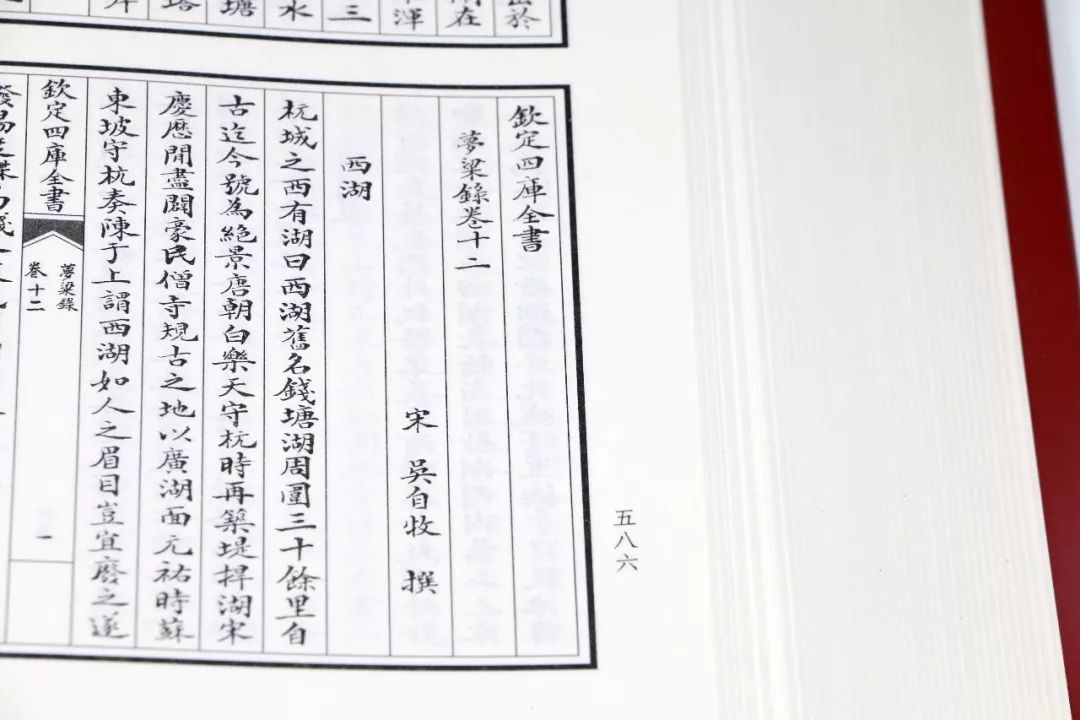 於
在
渾
三
水
塘
塔
欽定四庫全書
夢粱錄卷十二
宋 吳自牧 撰
西湖
杭城之西有湖曰西湖舊名錢塘湖周圍三十餘里自
古迄今號為絶景唐朝白樂天守杭時再築堤捍湖宋
慶厯間盡闢豪民僧寺規古之地以廣湖面元祐時蘇
東坡守杭奏陳于上謂西湖如人之眉目豈宜廢之遂
欽定四庫全書
夢粱錄
卷十二
一
五八六